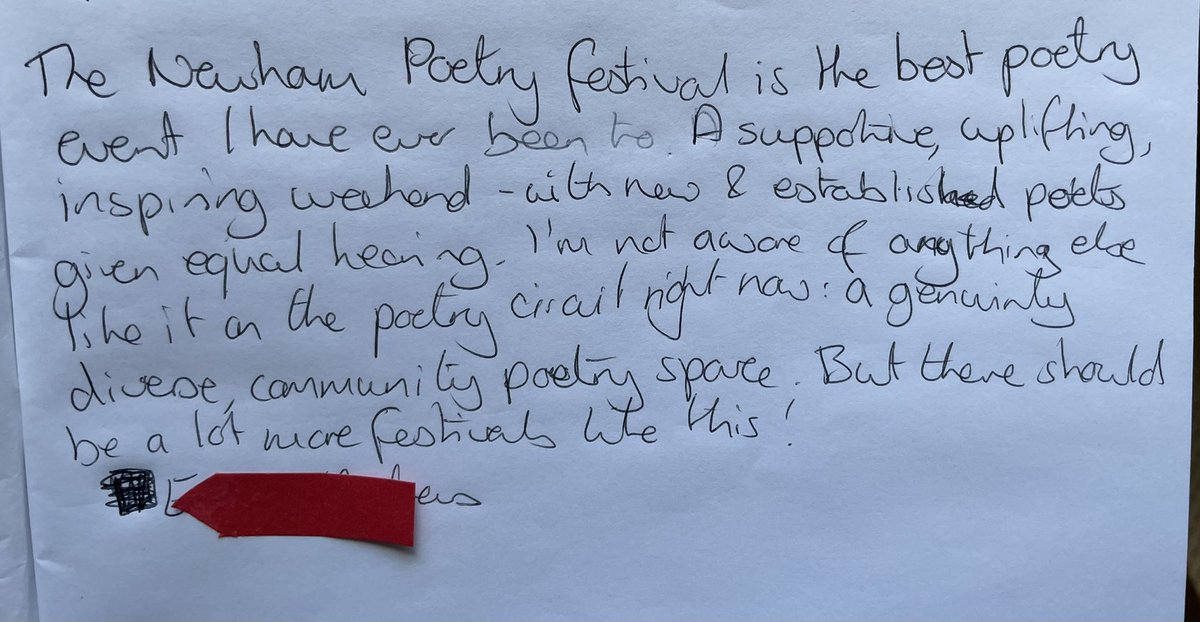 The Newham Poetry festival is the best poetry
event I have ever been to. A supportive, uplifting,
inspiring weekend - with new & established poets
given equal hearing. I'm not aware of anything else
like it on the poetry circuit right now: a genuinly
diverse, community poetry space. But there should
be a lot more festivals like this!